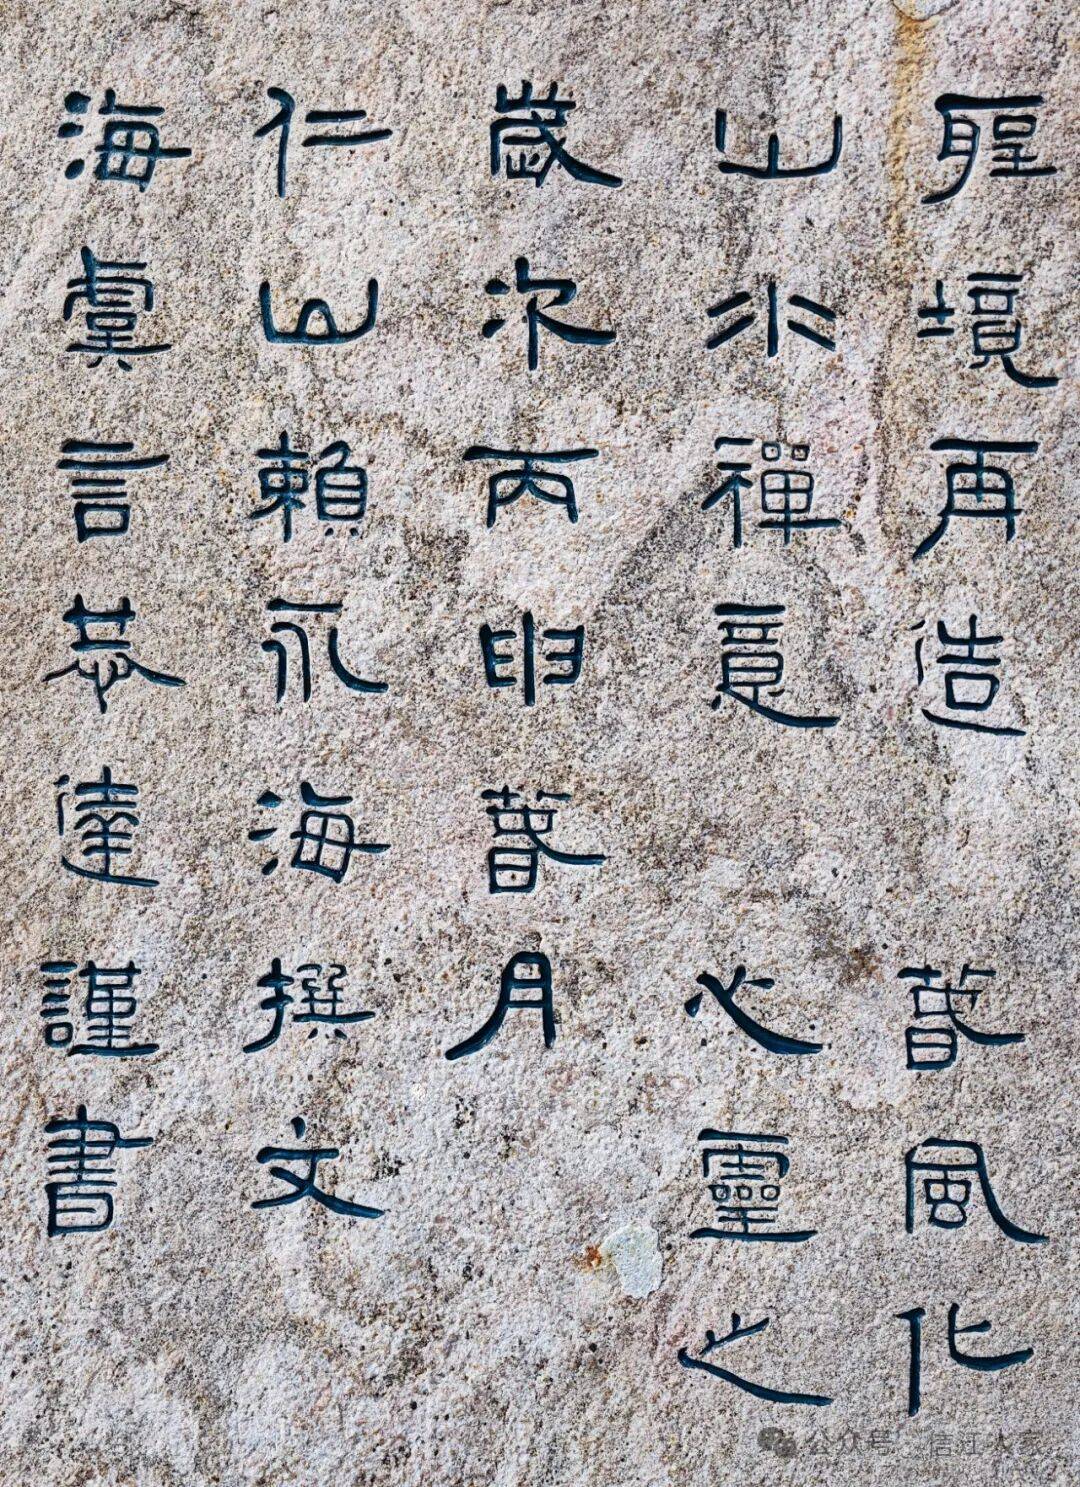 聖境再造 春風化
山水禪意 心靈之
歲次丙申春月
仁山賴永海撰文
海虞言恭達謹書
公众号 · 信江人家